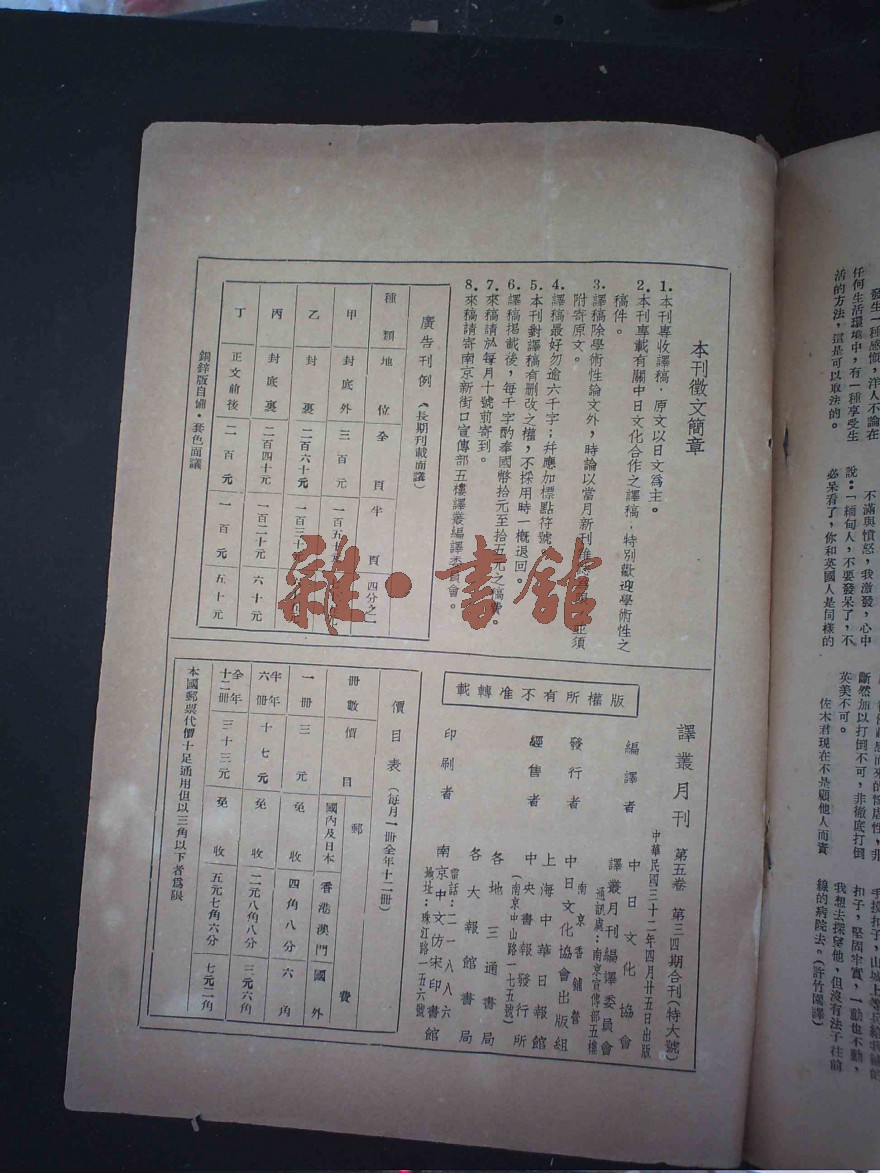 本刊徵文簡章
1.本刊專收譯稿,原文以日文爲主。
2.本刊專載有關中日文化合作之譯稿,特別歡迎學術性之
稿件。
3.譯稿除學術性論文外,時論以當月新刊 須
附寄原文。
4.譯稿最好勿逾六千字;幷應加標點符號。
5.本刊對譯稿有删改之權,不採用時一概退回。
6.譯稿揭載後,每千字酌奉國幣拾元至拾五元之稿費。
7.來稿請於每月十號前寄到。
8.來稿請寄南京新街口宣傳部五樓譯叢編譯委員會。
廣告刊例(長期刊載面議)
種類 地位 全頁 半頁 四分之一
甲 封底外 三百元 一百五十
乙 封裏 二百六十元 一百三十
丙 封底裏 二百四十元 一百二十元 六十元
丁 正文前後 二百元 一百元 五十元
銅鋅版自備·套色面議
雜·書館
譯叢月刊 第五卷 第三四期合刊(特大號)
中華民國三十二年四月廿五日出版
編譯者 中日文化協會
譯叢月刊編譯委員會
通訊處:南京宣傳部五樓
發行者 南京香鋪營
中日文化協會出版組
上海中華日報館
經售者 中央書報發行所
(南京中山路一七五號)
各地三通書局
各大報館書局
印刷者 南京中文仿宋印書館
電話:二一八八六
地址:珠江路一五六號
版權所有不准轉載
價目表(每月一冊全年十二冊)
冊數 價目 郵費
國內及日本 香港澳門 國外
一冊 三元 免收 四角八分 六角
半年六冊 十七元 免收 二元八角八分 三元六角
全年十二冊 三十三元 免收 五元七角六分 七元二角
本國郵票代價十足通用但以三角以下者爲限
發生一種感慨,洋人不論在
任何生活環境中,有一種享受生
活的方法,這是可以取法的。
不滿與憤怒,我激發,心中
說:「緬甸人,不要發呆了,不
必呆看了,你和英國人是同樣的
斷然加以打倒不可,非徹底打倒
英美不可。
佐木君現在不是顧他人而賣
扣子,堅固牢實,一動也不動,
我想去探望他,但沒有法子往前
線的病院去。(許竹園譯)